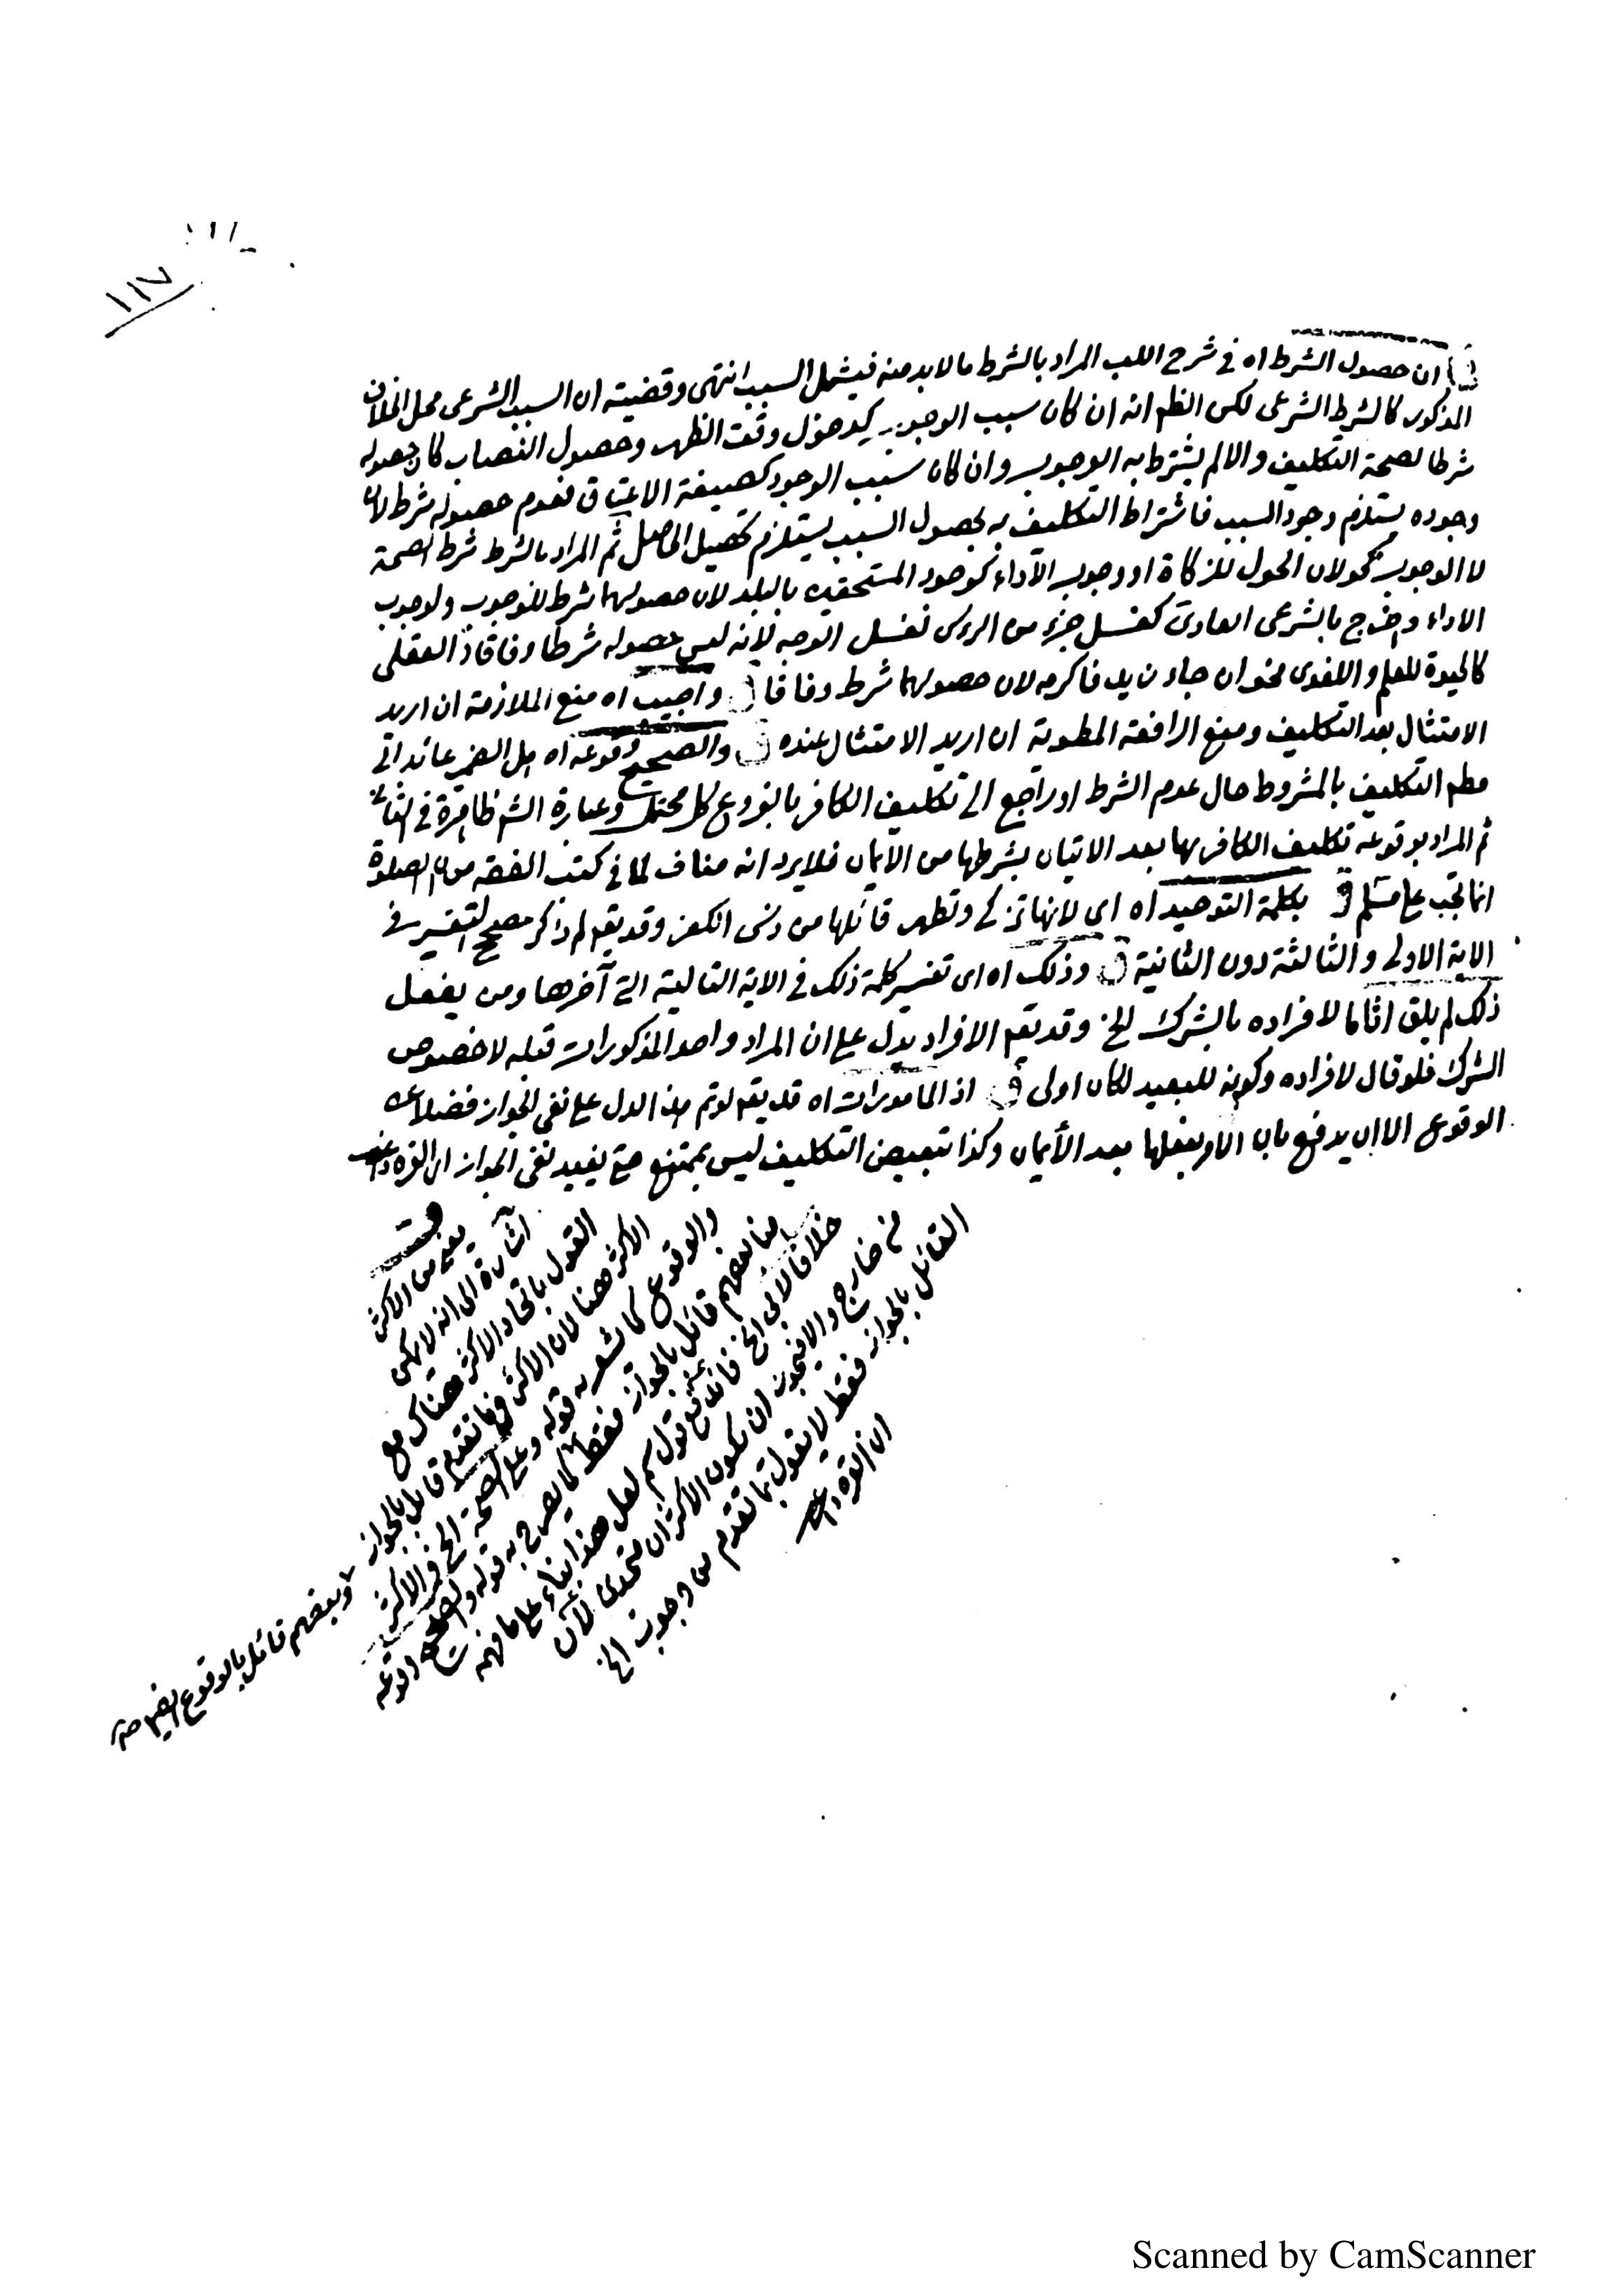 ١١٧
ان حصول الشرط اه في شرح اللب المراد بالشرط ما لا بد منه فيشمل السبب انتهى وقضيته ان السبب الشرعى محل الخلاف
المذكور كالشرط الشرعى لكن الظم انه ان كان سبب الوجوب كدخول وقت الظهر وحصول النصاب كان حصوله
شرطا لصحة التكليف والا لم يشترط به الوجوب وان كان سبب الوجود كصيغة الاعتاق فعدم حصوله شرط لان
وجوده يستلزم وجود السبب فاشتراط التكليف به بحصول السبب يستلزم تحصيل الحاصل ثم المراد بالشرط شرط الصحة
لا الوجوب كحولان الحول للزكاة او وجوب الاداء كوجود المستحقين بالبلد لان حصولهما شرط للوجوب ولوجوب
الاداء وخرج بالشرعى العادى كغسل جزء من الرءس لغسل الوجه لانه ليس حصوله شرطا وفاقا والعقلى
كالحيوة للعلم واللغوى نحو ان جاء زيد فاكرمه لان حصولهما شرط وفاقا ق واجيب اه منع الملازمة ان اريد
الامتثال بعد التكليف ومنع الرافعة المطوية ان اريد الامتثال عنده ق والصحيح وقوعه اه هل الضمير عائد الى
مطم التكليف بالمشروط حال عدم الشرط او راجع الى تكليف الكافر بالفروع كل محتمل وعبارة الشم ظاهرة في الثانى
ثم المراد بوقوعه تكليف الكافر بها بعد الاتيان بشرطها من الايمان فلا يرد انه مناف لما في كتب الفقه من ان الصلوة
انما تجب على مسلم ق بكلمة التوحيد اه اى لانها تزكى وتطهر قائلها من دنس الكفر وقد يقم لم ذكر مصحح التفسير في
الاية الاولى والثالثة دون الثانية ق وذلك اه اى تفسير كلمة ذلك في الاية التالية التى آخرها ومن يفعل
ذلك لم يلق اثاما لا فراده بالشرك الخ وقد يقم الافراد يدل على ان المراد واحد المذكورات قبله لا خصوص
الشرك فلو قال لافراده وكونه للبعيد لكان اولى ق اذ المامورات اه قد يقم لو تم هذا لدل على نفى الجواز فضلا عن
الوقوع الا ان يدفع بان الامر بفعلها بعد الأيمان وكذا تبعيض التكليف ليس بممتنع حتى يفيد نفى الجواز ان القره داغى
يعنى من الاكثر
اشارة الى انه لا يمكن
القول باتحاد الاكثر هناك مع
الاكثر هنا لان الاكثر فيما تقدم قائل بالجواز وبعضهم قائل بالوقوع ايضا
والوقوع كما شعر به قوله وعلى الصحة الخ والاكثر
هنا بعضهم قائل بالجواز فقط كما يصرح به قوله والصحيح وقوعه
خلافا لابى الخ فانه قول لعل هذا بناء على ما فهمه
من خارج والا فيجوز ان يكون الاكثر ان متحدى لان
القائل بالجواز فقط لا يقول بما تقدم من وجوب الخ
ان القره داغى
Scanned by CamScanner